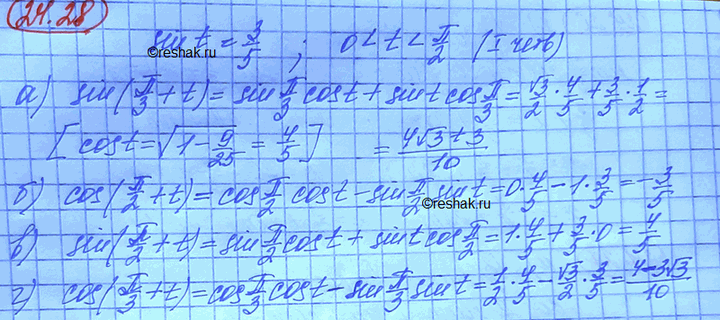 24.28
sin t = 3/5 ; 0 < t < π/2 (I четв)
©reshak.ru
а) sin(π/3 + t) = sin π/3 cos t + sin t cos π/3 = √3/2 · 4/5 + 3/5 · 1/2 =
[cos t = √(1 - 9/25) = 4/5] = (4√3 + 3)/10
б) cos(π/2 + t) = cos π/2 cos t - sin π/2 sin t = 0 · 4/5 - 1 · 3/5 = -3/5
©reshak.ru
в) sin(π/2 + t) = sin π/2 cos t + sin t cos π/2 = 1 · 4/5 + 3/5 · 0 = 4/5
г) cos(π/3 + t) = cos π/3 cos t - sin π/3 sin t = 1/2 · 4/5 - √3/2 · 3/5 = (4 - 3√3)/10